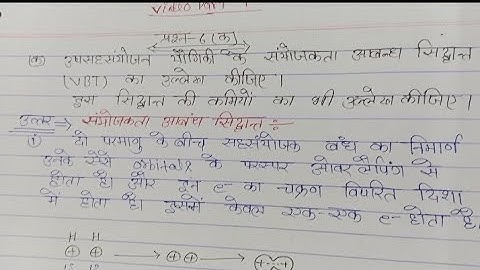 Video Part - 1
प्रश्न-6 (क)
(क) उपसहसंयोजन यौगिकों के संयोजकता आबन्ध सिद्धांत
(VBT) का उल्लेख कीजिए।
इस सिद्धान्त की कमियों का भी उल्लेख कीजिए।
उत्तर → संयोजकता आबंध सिद्धान्त:-
① दो परमाणु के बीच सहसंयोजक बंध का निर्माण
उनके orbitals के परस्पर ओवरलैपिंग से
होता है। और इन e- का चक्रण विपरित दिशा
में होता है। इसमें केवल एक-एक e- होता है,
H H
⊕ ⊕ → ⊕ ⊕ →